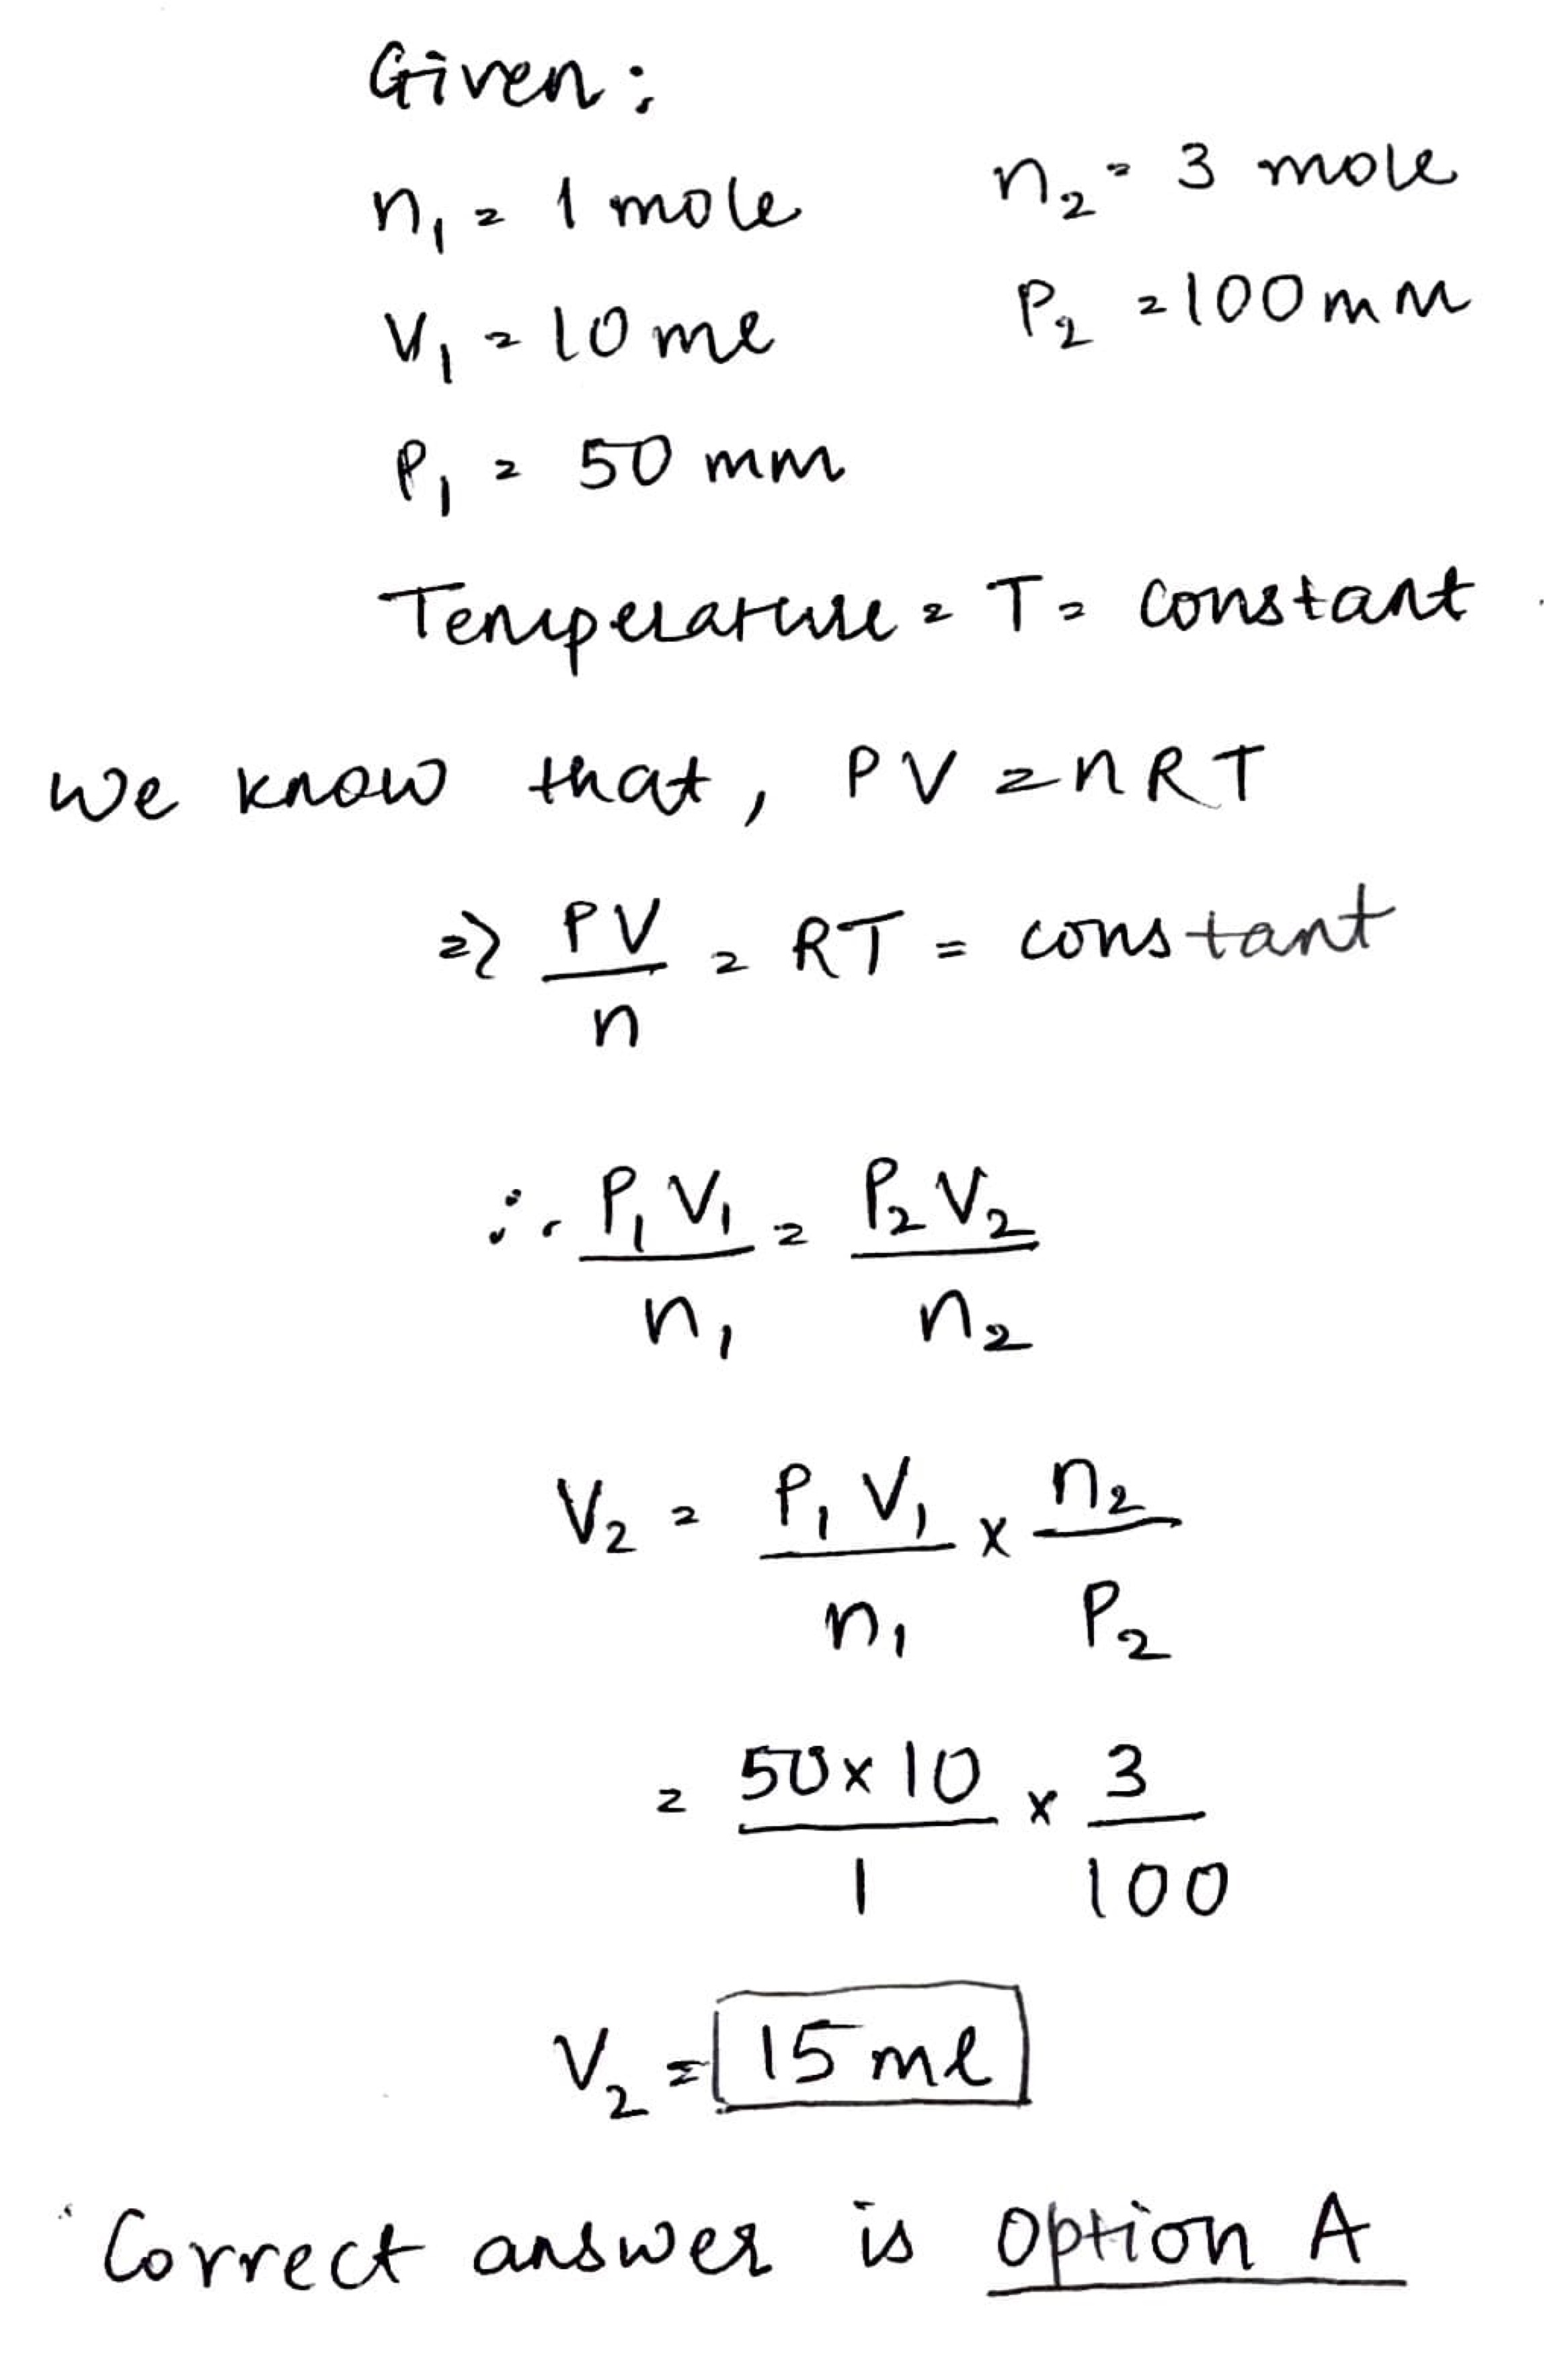 Given:
n₁ = 1 mole n₂ = 3 mole
V₁ = 10 ml P₂ = 100 mm
P₁ = 50 mm
Temperature = T = constant
We know that, PV = nRT
⇒ PV/n = RT = constant
∴ P₁V₁/n₁ = P₂V₂/n₂
V₂ = P₁V₁/n₁ × n₂/P₂
= 50×10/1 × 3/100
V₂ = 15 ml
Correct answer is Option A